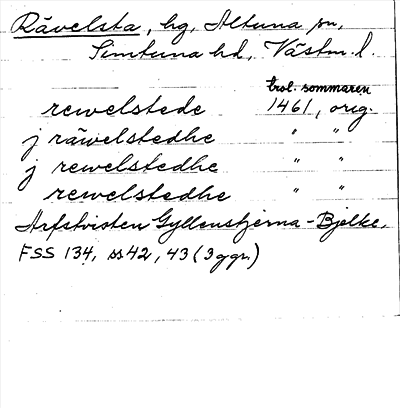 Rävelsta, hg, Altuna sn,
Simtuna hd, Västm. l.
trol. sommaren
rewelstede 1461, orig.
j räwelstedhe " "
j rewelstedhe " "
rewelstedhe " "
Arfstvisten Gyllenstjerna-Bjelke,
FSS 134, ss 42, 43 (3 ggr.)